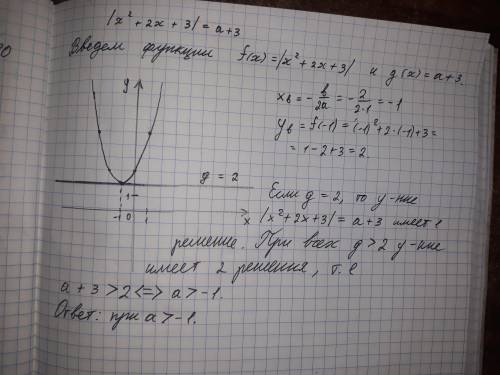 |x² + 2x + 3| = a+3
Введем функции f(x) = |x² + 2x + 3| и g(x) = a+3.
xв = - в/2a = - 2/2·1 = -1
yв = f(-1) = (-1)² + 2·(-1) + 3 =
= 1 - 2 + 3 = 2.
y
g = 2
1
-1 0 1 x
Если g = 2, то у-ние
|x² + 2x + 3| = a + 3 имеет 1
решение. При всех g > 2 у-ние
имеет 2 решения, т.е
a + 3 > 2 <=> a > -1.
Ответ: при a > -1.